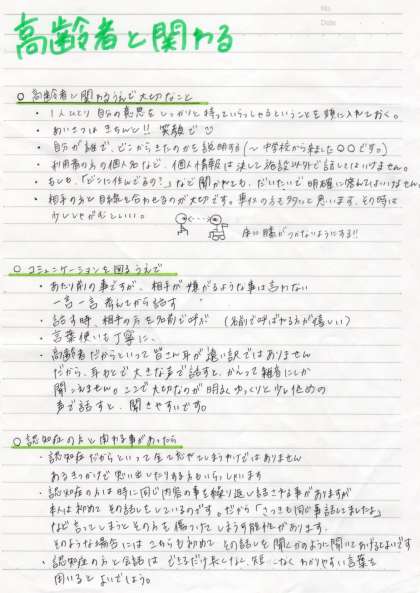 No.
Date
高齢者と関わる
○ 高齢者と関わるうえで大切なこと
・1人ひとり自分の意思をしっかりと持っていらっしゃるということを頭に入れておく。
・あいさつは きちんと!! 笑顔で♡
・自分が誰で、どこからきたのかを説明する(~中学校から来ました〇〇です。)
・利用者の方の個人名など、個人情報は決して施設以外で話してはいけません。
・もしも、「どこに住んでるの?」など聞かれても、だいたいで明確に答えてはいけません。
・相手の方と目線を合わせるのが大切です。車イスの方も多いと思います。その時は
少ししゃがむといい。
床に膝がつかないようにする!!
○ コミュニケーションを図るうえで
・あたり前の事ですが、相手が嫌がるような事は言わない
一言一言 考えてから話す
・話す時、相手の方を名前で呼ぶ (名前で呼ばれる方が嬉しい)
・言葉使いも丁寧に、
・高齢者だからといって皆さん耳が遠い訳ではありません
だから、耳もとで大きな声で話すと、かえって雑音にしか
聞こえません。ここで大切なのが明るくゆっくりと少し低めの
声で話すと、聞きやすいです。
○ 認知症の方と関わる事があったら
・認知症だからといって全て忘れてしまうわけではありません
あるきっかけで思い出したりする方もいらっしゃいます
・認知症の方は時に同じ内容の事を繰り返し話される事がありますが
本人は初めてその話をしているのです。だから「さっきも同じ事話してましたよ」
など言ってしまうとその方を傷つけてしまう可能性があります。
そのような場合には こちらも初めて その話を聞くかのように聞いてあげるとよいです
・認知症の方と会話は できるだけ長くなく、短く わかりやすい言葉を
用いると よいでしょう。